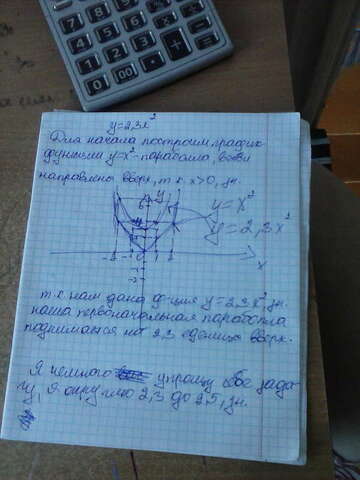 7 8 9 ÷
4 5 6 ×
1 2 3 +
0 00 . =
y=2,3x²
Для начала построим график
функции y=x² - парабола, ветви
направлены вверх, т.к x>0, зн.
y
6
y=x²
y=2,3x²
-2 -1 0 1 2
x
-1
-2
т.к нам дана ф-ция y=2,3x², зн.
наша первоначальная парабола
поднимается на 2,3 единицы вверх.
Я немного упрощу себе зада
чу, я округлю 2,3 до 2,5, зн.